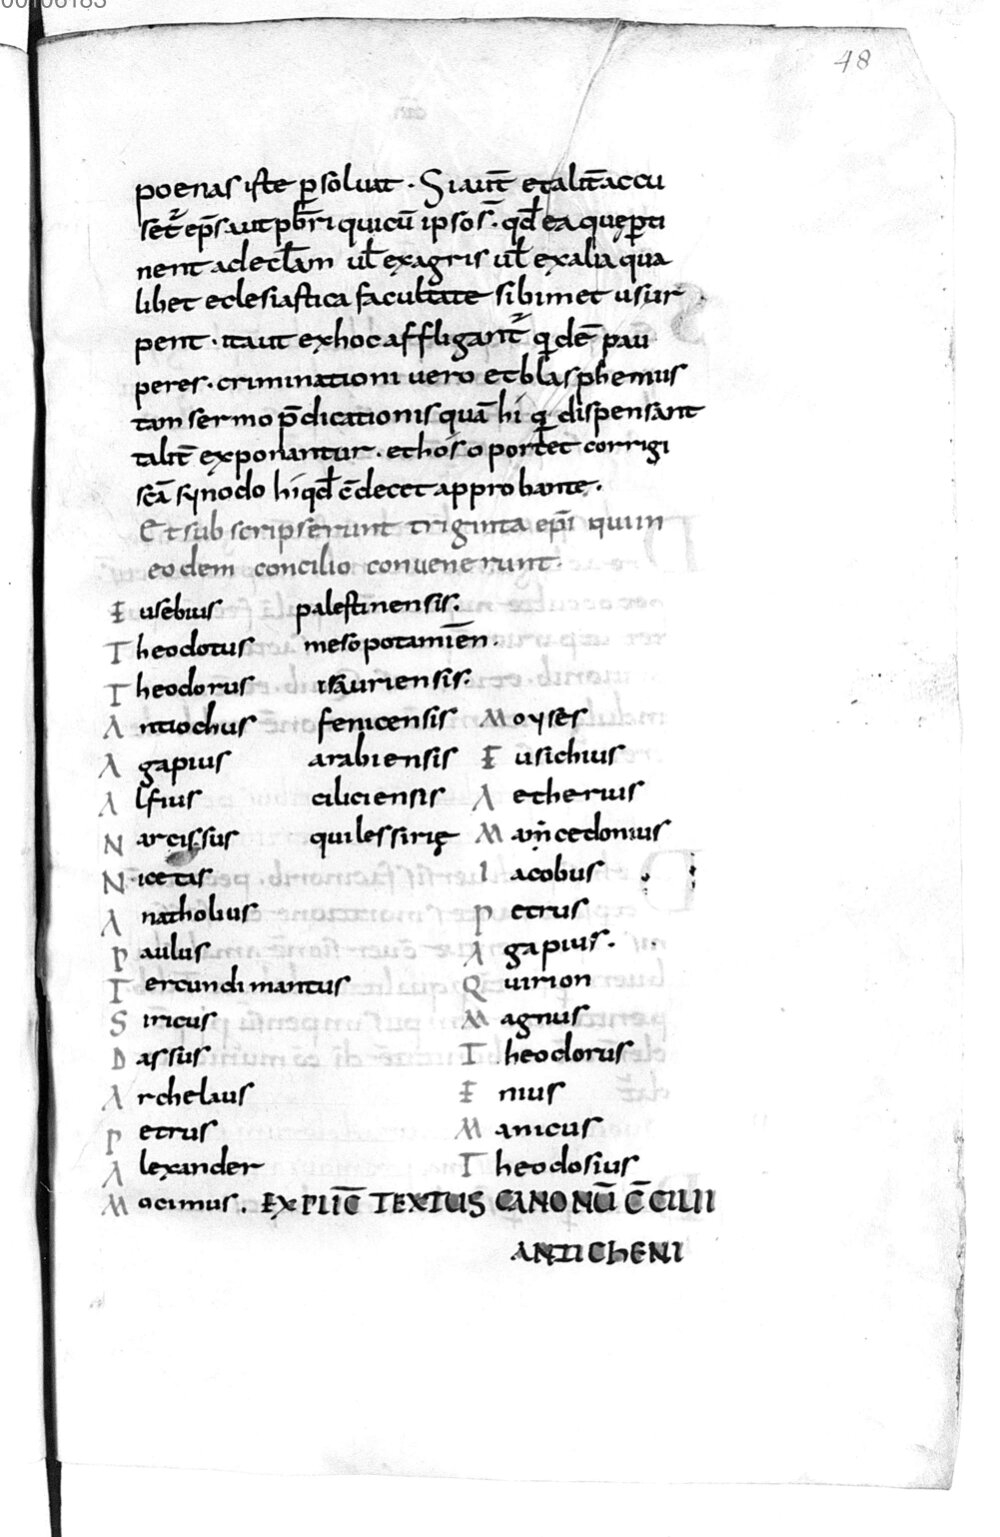 00106183
48
poenas iste p̱soluat · Si aut̄ et alit̄ accu
set᷑ ep̄s · aut pb̄ri qui cū ipso s̄ · qd̄ ea quę ꝑti
nent ad ecl̄am ul̄ ex agris ul̄ ex alia qua
libet eclesiastica facultate sibimet usur
pent · ita ut ex hoc affligant᷑ qidē pau
peres · criminationi uero et blasphemus
tam sermo p̄dicationis quā hi qi dispensant
talit̄ exponantur · et hos oportet corrigi
sc̄a synodo hi qd̄ c̄decet approbante ·
Et subscripserunt triginta ep̄i qui in
eodem concilio conuenerunt ·
Eusebius palestinensis ·
Theodotus mesopotamiēn ·
Theodorus isauriensis ·
Antiochus fenicensis Moyses
Agapius arabiensis Eusichius
Alfius ciliciensis Aetherius
Narcissus quilessirię Mancedonius
Nicetas Iacobus
Anatholius Petrus
Paulus Agapius ·
Tercundimantus Quirion
Siricus Magnus
Dassus Theodorus
Archelaus Enius
Petrus Manicus
Alexander Theodosius
Mocimus · EXPLIC̄ TEXTUS CANONŪ C̄CILII
ANTICHENI